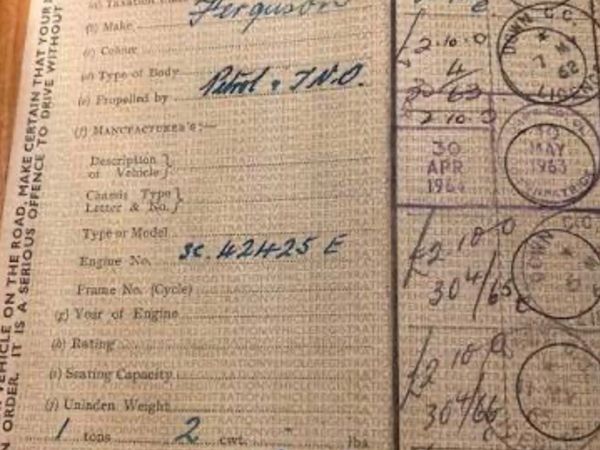 VEHICLE ON THE ROAD, MAKE CERTAIN THAT YOUR
ORDER. IT IS A SERIOUS OFFENCE TO DRIVE WITHOUT
(b) Make Ferguson
(c) Colour
(d) Type of Body
(e) Propelled by Petrol & T.V.O.
(f) MANUFACTURER'S:—
Description of Vehicle}
Chassis Type Letter & No.}
Type or Model
Engine No. SC. 42425 E
Frame No. (Cycle)
(g) Year of Engine
(h) Rating
(i) Seating Capacity
(j) Unladen Weight
1 tons 2 cwt. lbs
2.10.0
4
30/63
2 10.0
30
APR
1964
2 10 0
30/4/65
2 10 0
30/4/66
DOWN C.C.
7
62
30
MAY
1963
DOWN